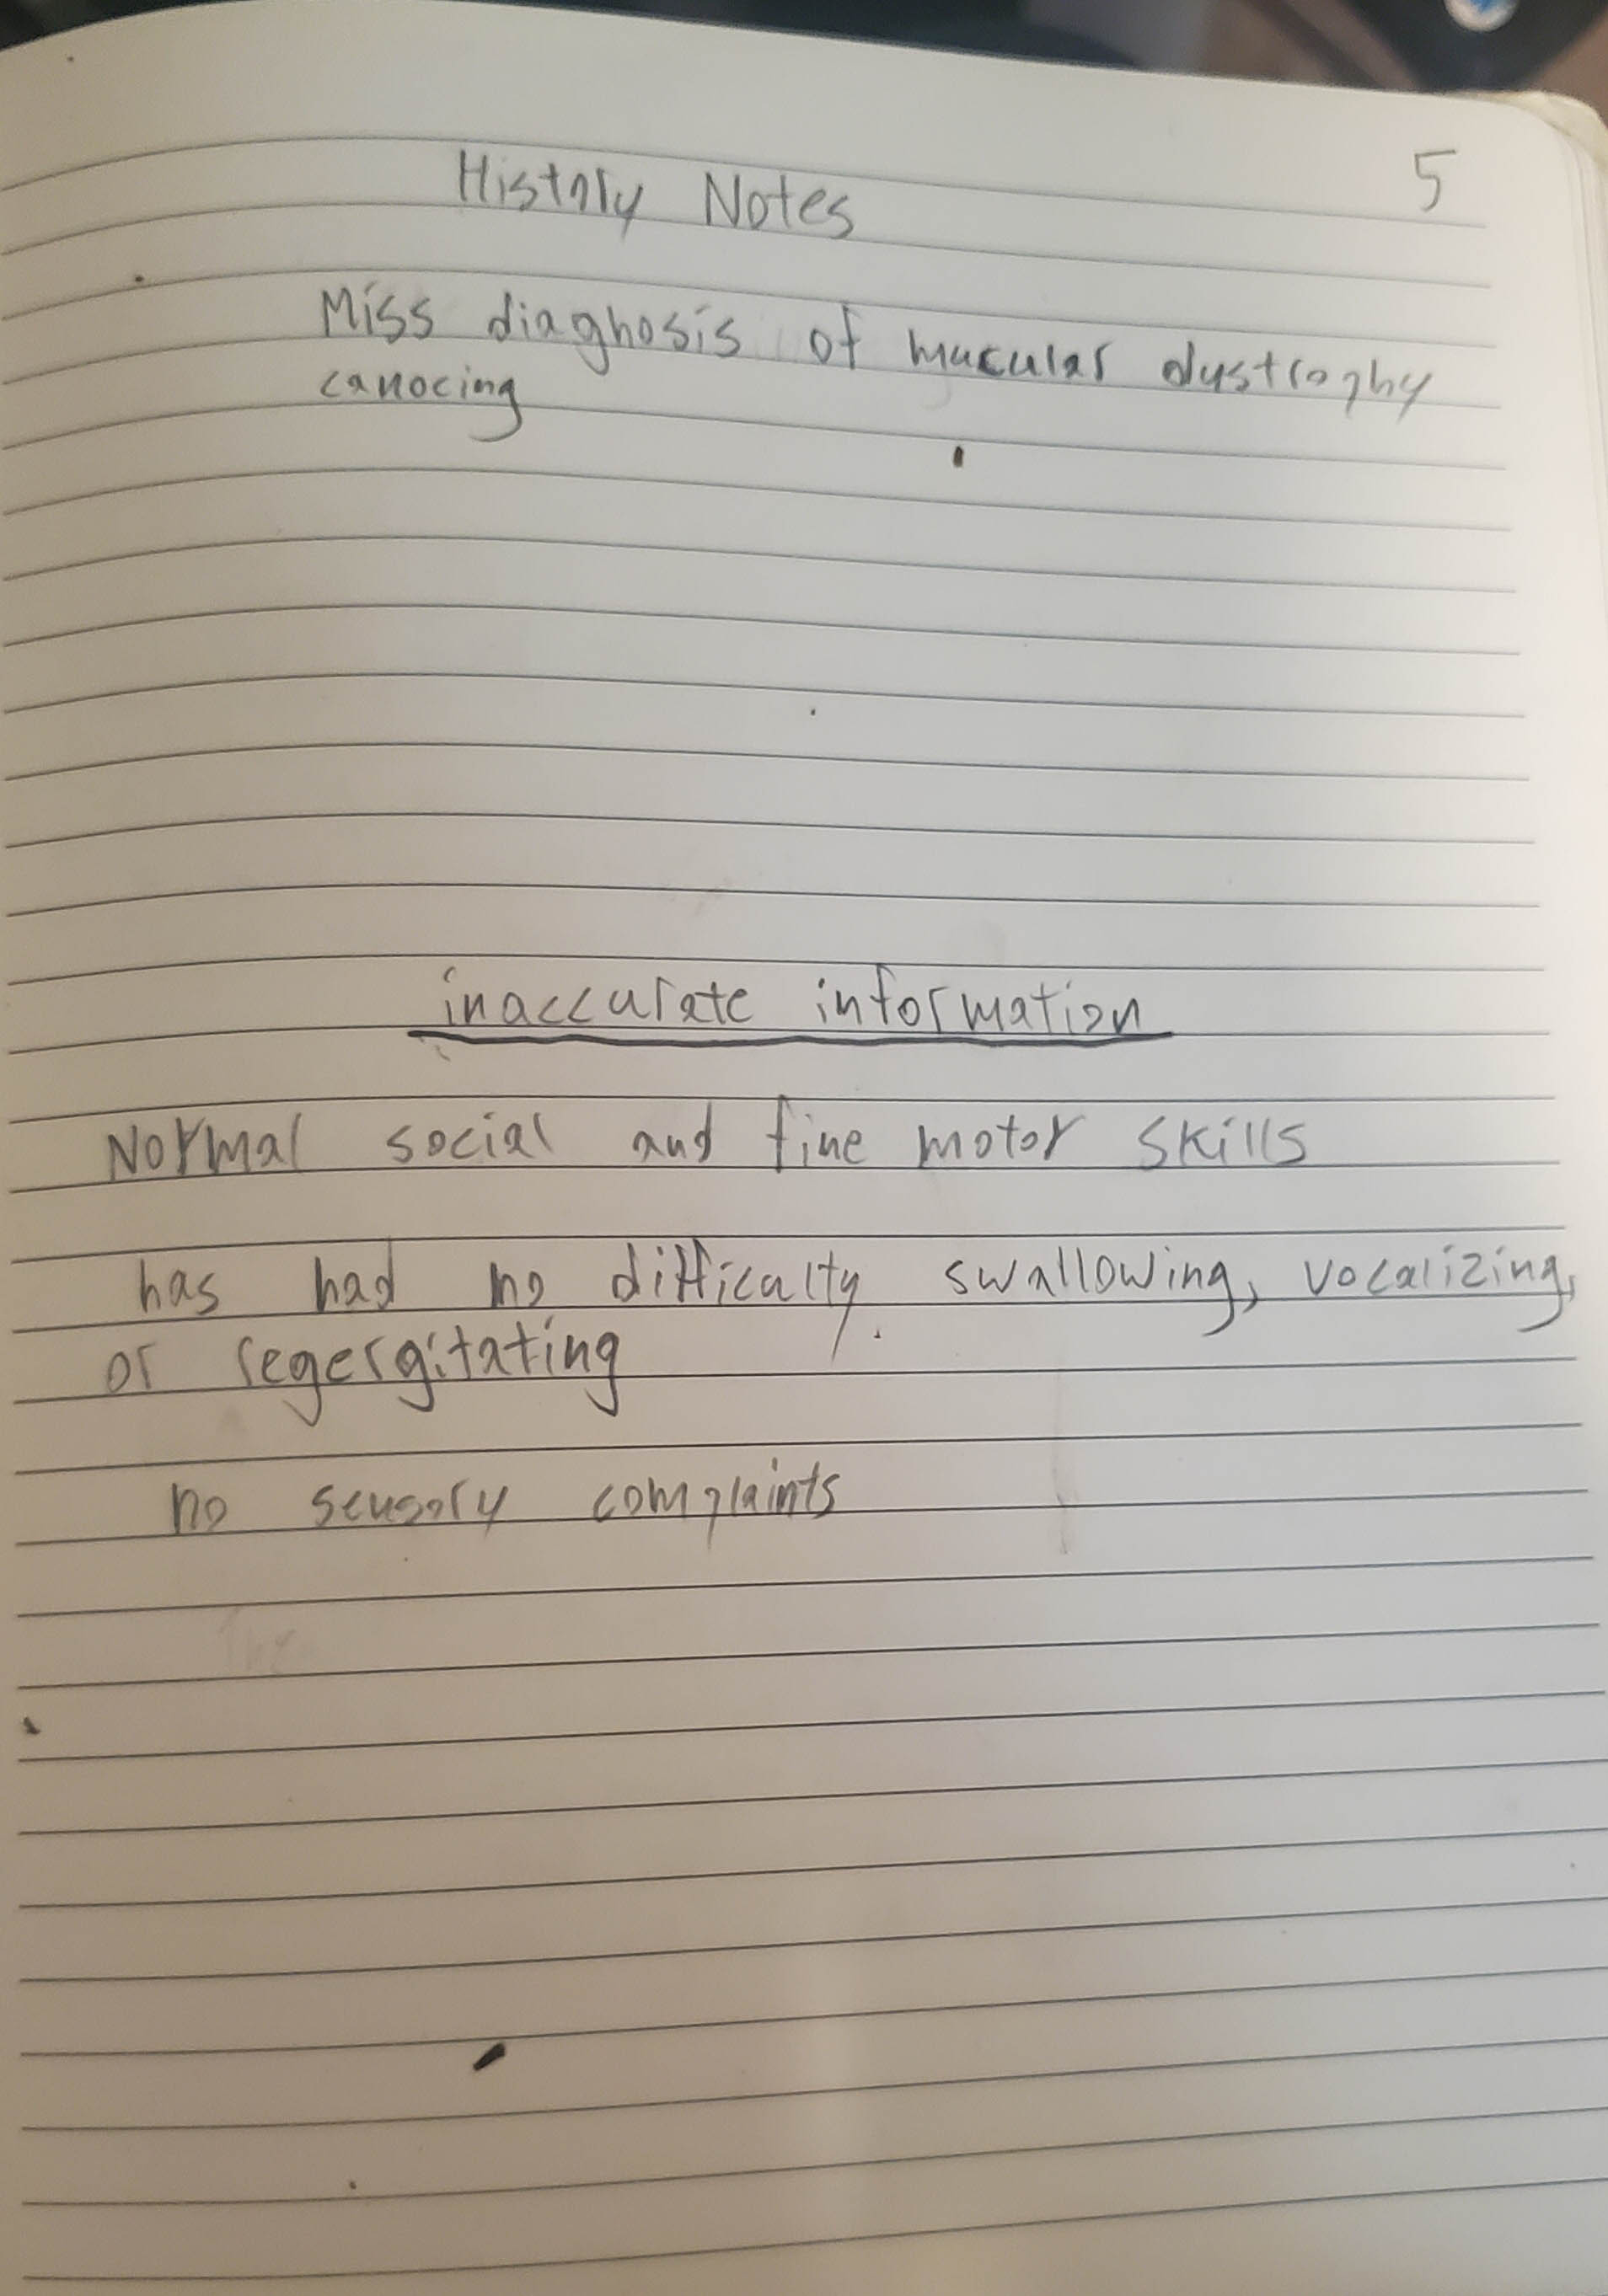 History Notes 5
Miss diagnosis of mucular dystrophy
canocing
inaccurate information
Normal social and fine motor skills
has had no difficulty swallowing, vocalizing,
or regergitating
no sensory complaints